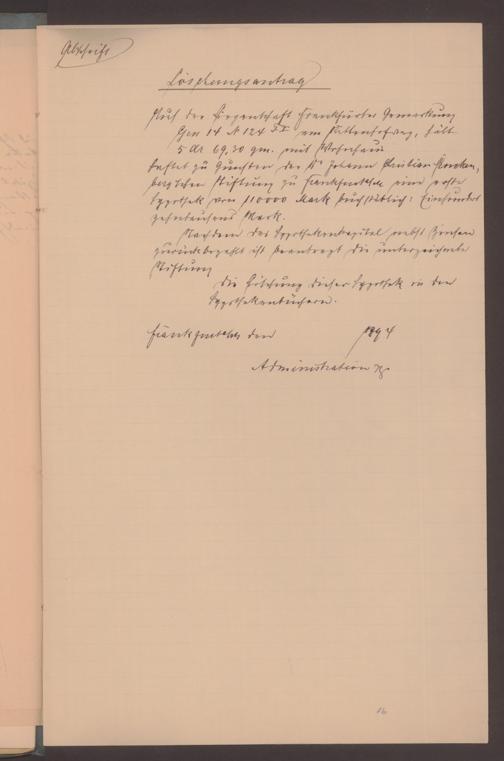 Abschrift
Löschungsantrag
Auf der Liegenschaft Frankfurter Gemarkung
Gew 14 N 124 am Kettenhofweg, hält
5 Ar 69,30 qm. mit Wohnhaus
haftet zu Gunsten der Dr Johann Christian Sencken-
bergischen Stiftung zu Frankfurt a/M eine erste
Hypothek von 110000 Mark buchstäblich: Einhundert
zehntausend Mark.
Nachdem das Hypothekenkapital nebst Zinsen
zurückbezahlt ist beantragt die unterzeichnete
Stiftung
die Löschung dieser Hypothek in den
Hypothekenbüchern.
Frankfurt a/M den 1894
Administration
16